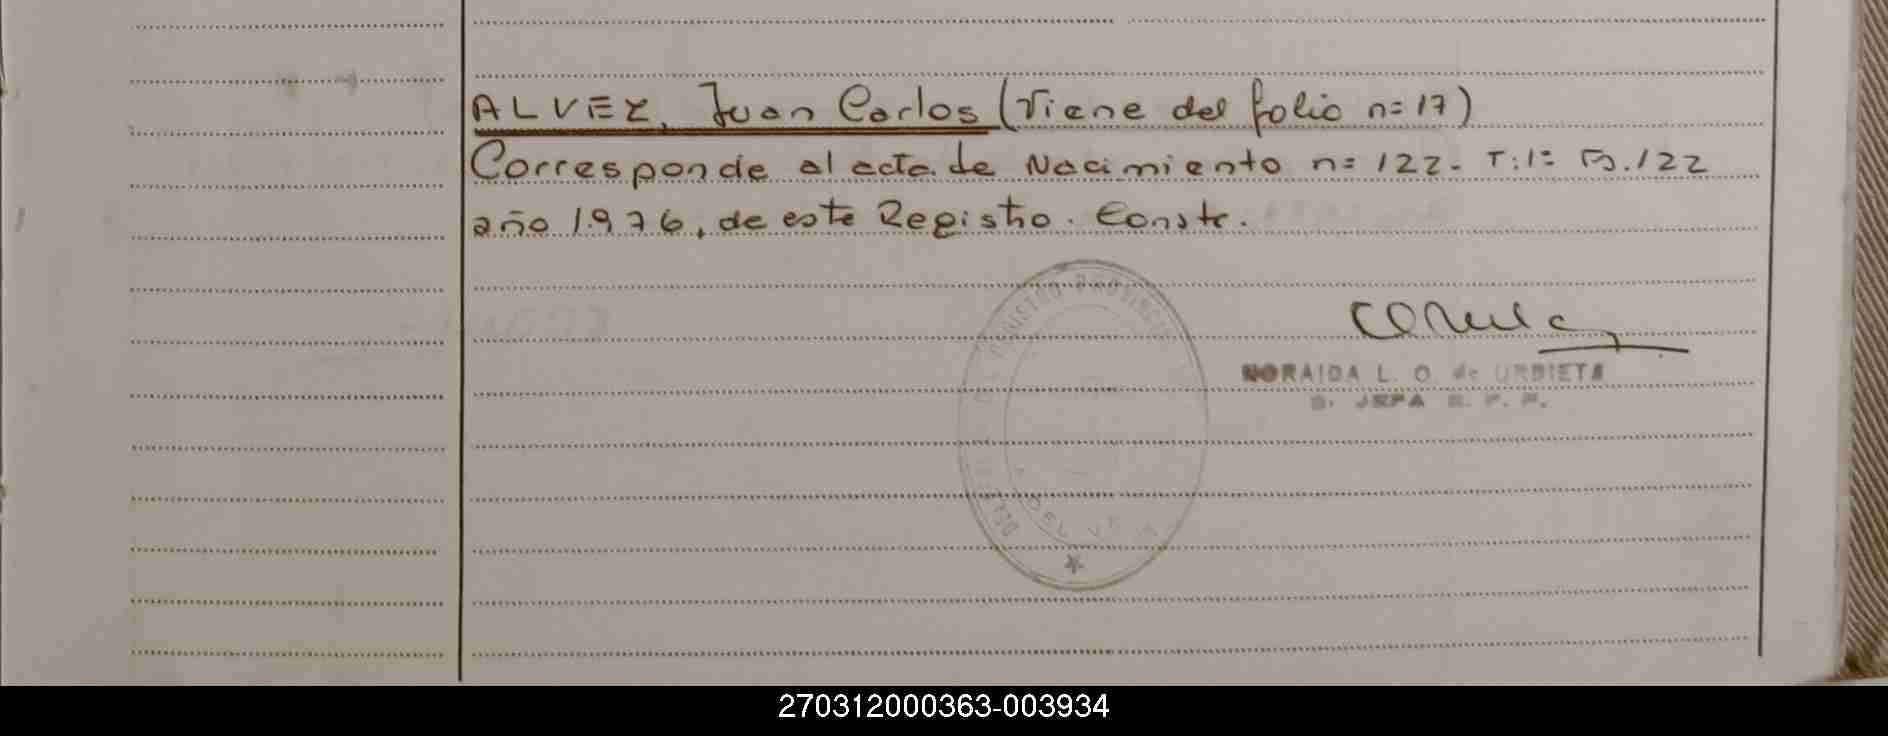 ALVEZ, Juan Carlos (Viene del folio n= 17)
Corresponde al acta de Nacimiento n= 122- T:1= Fo.122
año 1976, de este Registro. Conste.
NORAIDA L. O. de URBIETA
S. JEFA R. P. P.
270312000363-003934